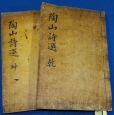 陶山詩選 乾
陶山詩選 坤